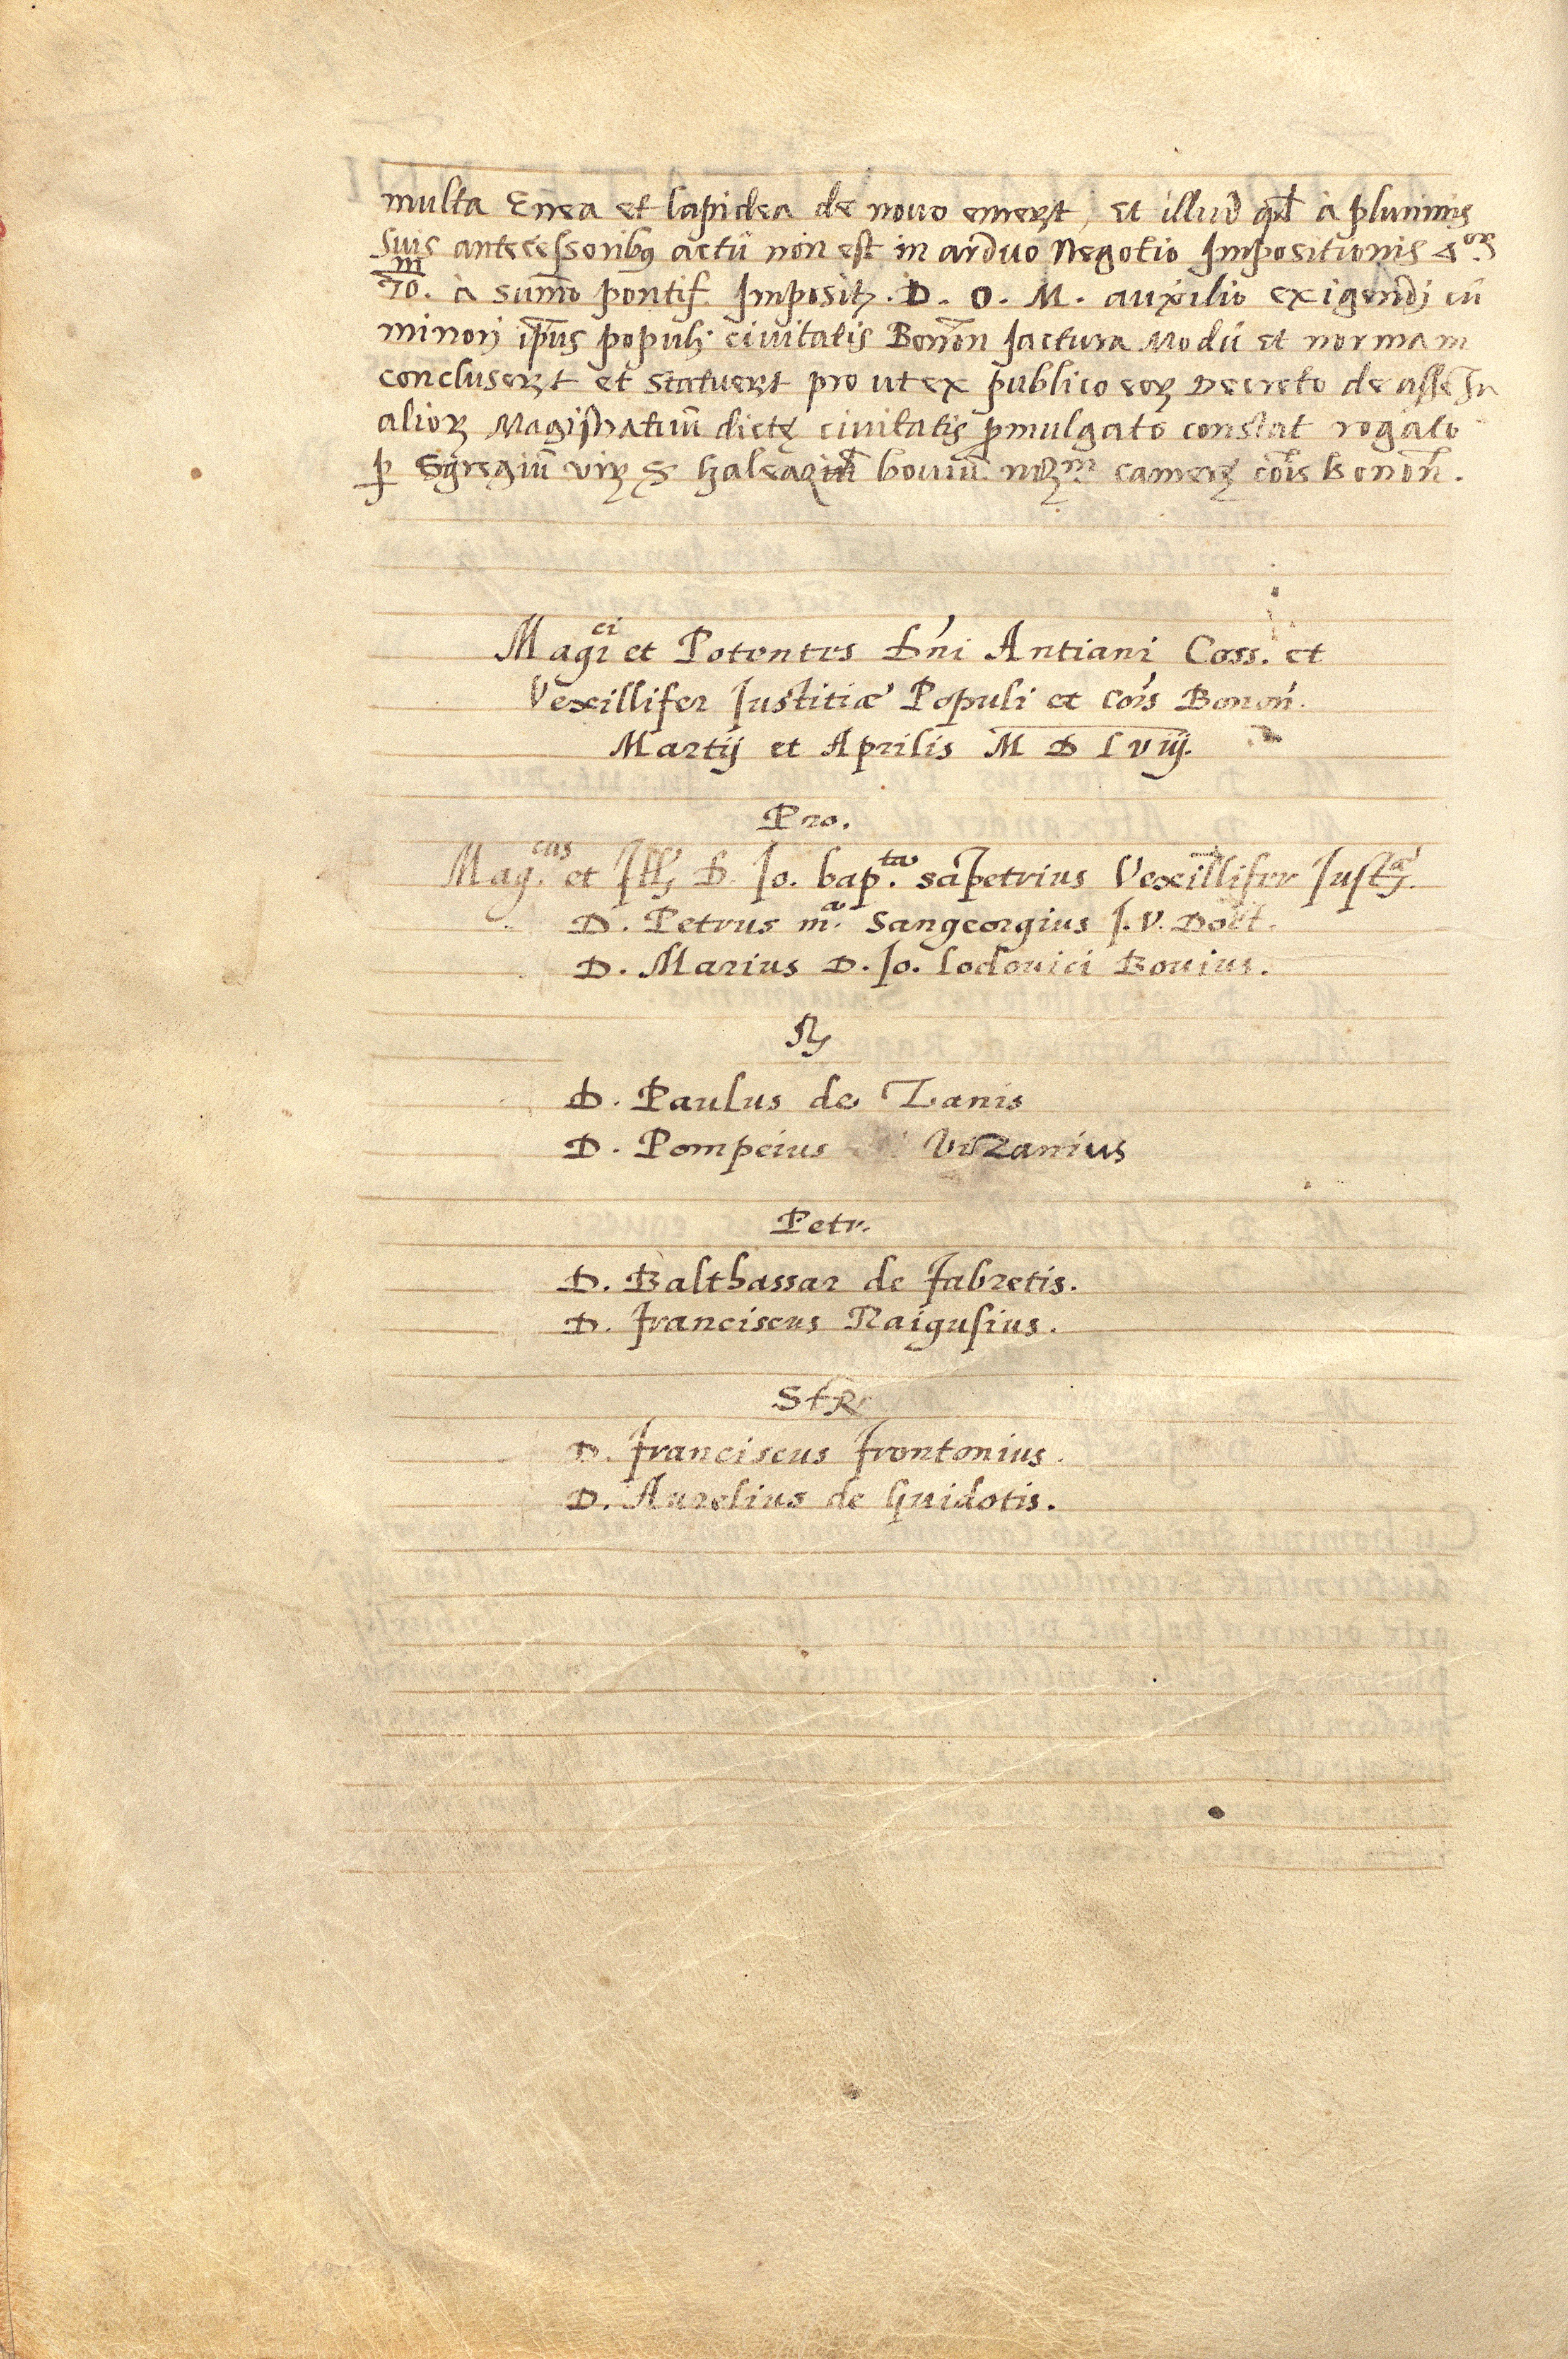 multa Enea et lapidea de nouo emerꝜt, et illud qđ à plurimis
suis antecessoribꝰ actū non est in arduo Negotio Impositionis
à sum̄o pontif. Imposit. D. O. M. auxilio exigendj cū
minori ip̄ius populi civitatis Bonon̄ Jactura Modū et normam
concluserꝜt et statuerꝜt pro ut ex publico eoꝝ Decreto de
alioꝝ Magistratuū dictę civitatis ꝓmulgato constat rogato
ꝑ Egregiū viꝝ bouiū camerę cōis Bonōn.
Mag.ci et Potentes Dn̄i Antiani Coss. et
Vexillifer Justitiæ Populi et Cōis Bonon̄.
Martij et Aprilis M D L viij.
Pro.
Mag.cus et Ill. D. Jo. bap.ta sāpetrius Vexillifer Just.æ
D. Petrus m.a Sangeorgius J. V. Doct.
D. Marius D. Jo. Lodouici Bouius.
D. Paulus de Zanis
D. Pompeius Vizanius
Petr.
D. Balthassar de fabretis.
D. franciscus Raigusius.
D. franciscus frontonius.
D. Aurelius de Guidotis.